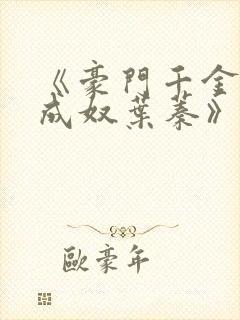 《豪門千金
成奴葉蓁》
歐豪年